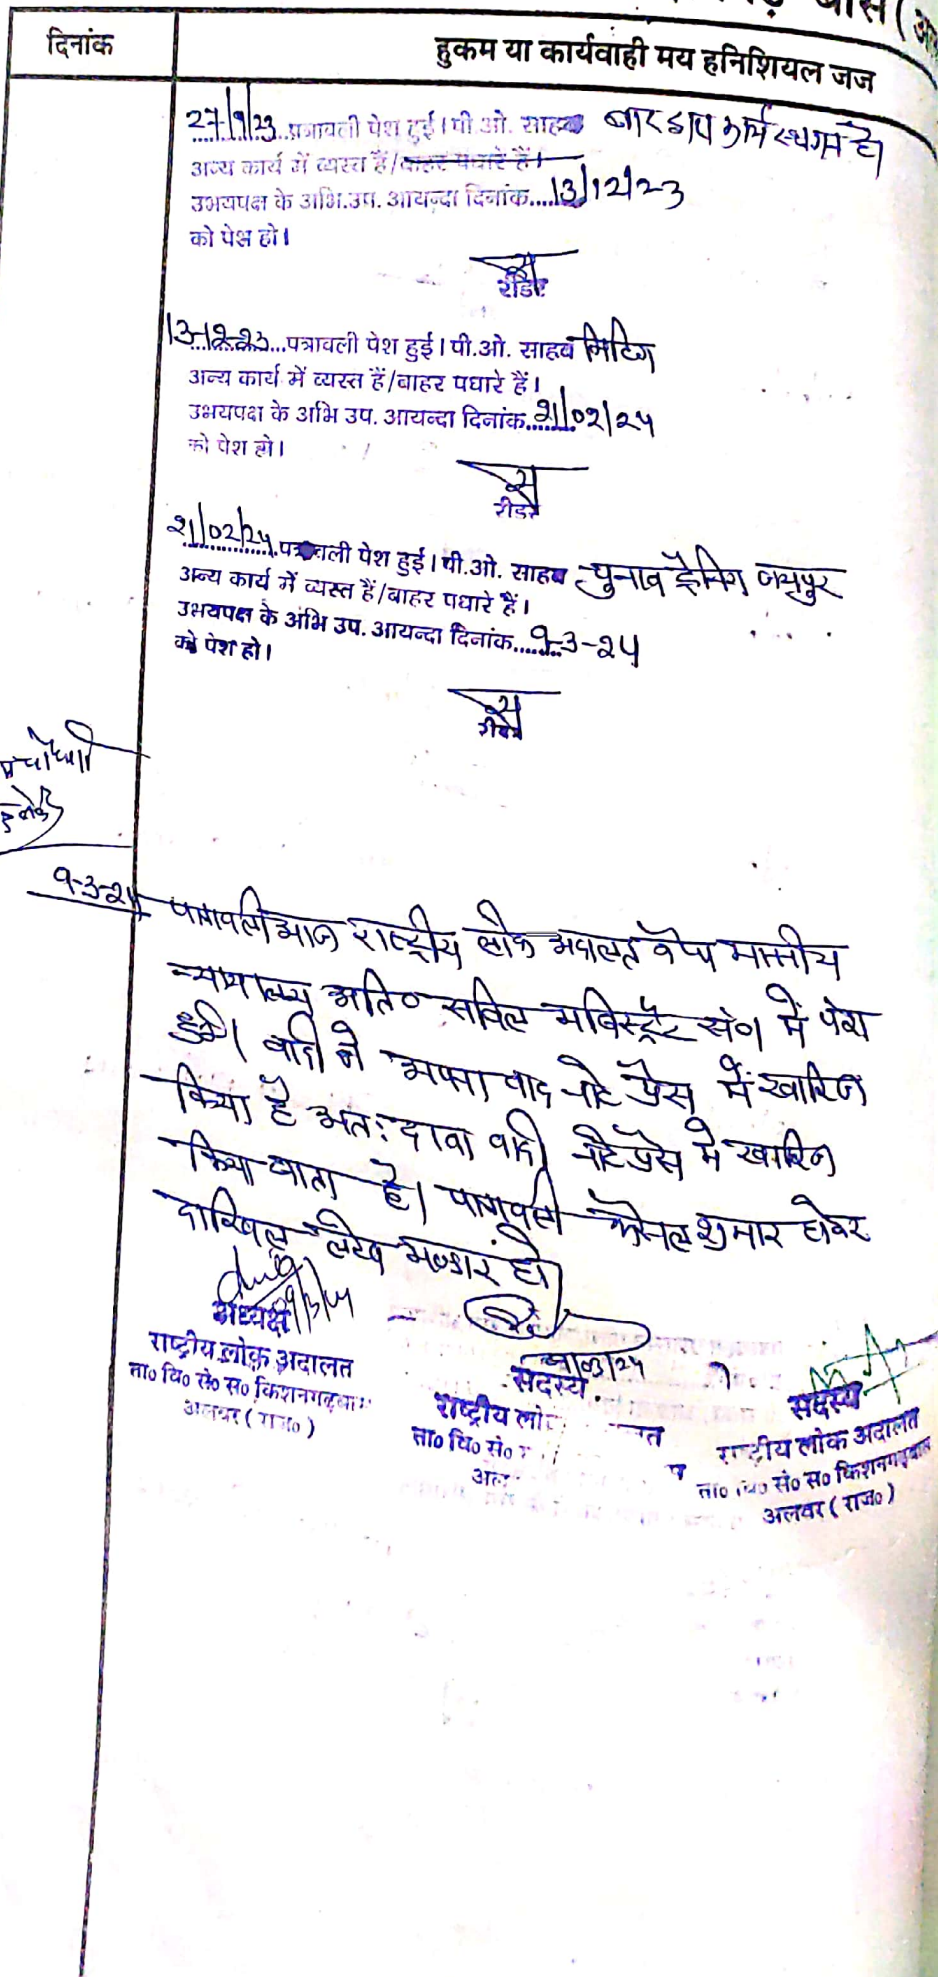 बास (
दिनांक
हुकम या कार्यवाही मय हनिशियल जज
27/9/23..पत्रावली पेश हुई। पी.ओ. साहब बार द्वारा कार्य स्थगन है।
अन्य कार्य में व्यस्त हैं/बाहर पधारे हैं।
उभयपक्ष के अभि.उप. आयन्दा दिनांक....13/12/23
को पेश हो।
रीडर
13-12-23...पत्रावली पेश हुई। पी.ओ. साहब मिटिंग
अन्य कार्य में व्यस्त हैं/बाहर पधारे हैं।
उभयपक्ष के अभि उप. आयन्दा दिनांक..21/02/24
को पेश हो।
रीडर
21/02/24.पत्रावली पेश हुई। पी.ओ. साहब चुनाव ट्रेनिंग जयपुर
अन्य कार्य में व्यस्त हैं/बाहर पधारे हैं।
उभयपक्ष के अभि उप. आयन्दा दिनांक......9-3-24
को पेश हो।
रीडर
9-3-24 पत्रावली आज राष्ट्रीय लोक अदालत केम्प माननीय
न्यायालय अति० सिविल मजिस्ट्रेट सं०1 में पेश
हुई। वादी ने अपना वाद नोट प्रेस में खारिज
किया है अतः दावा वादी नोट प्रेस में खारिज
किया जाता है। पत्रावली फैसल शुमार होकर
दाखिल लेख भण्डार हो।
09/3/24
अध्यक्ष
राष्ट्रीय लोक अदालत
ता० वि० से० स० किशनगढ़बास
अलवर (राज०)
09/03/24
सदस्य
राष्ट्रीय लो त
ता० वि० सं०
अल
सदस्य
राष्ट्रीय लोक अदालत
ता० वि० सं० स० किशनगढ़बास
अलवर (राज०)